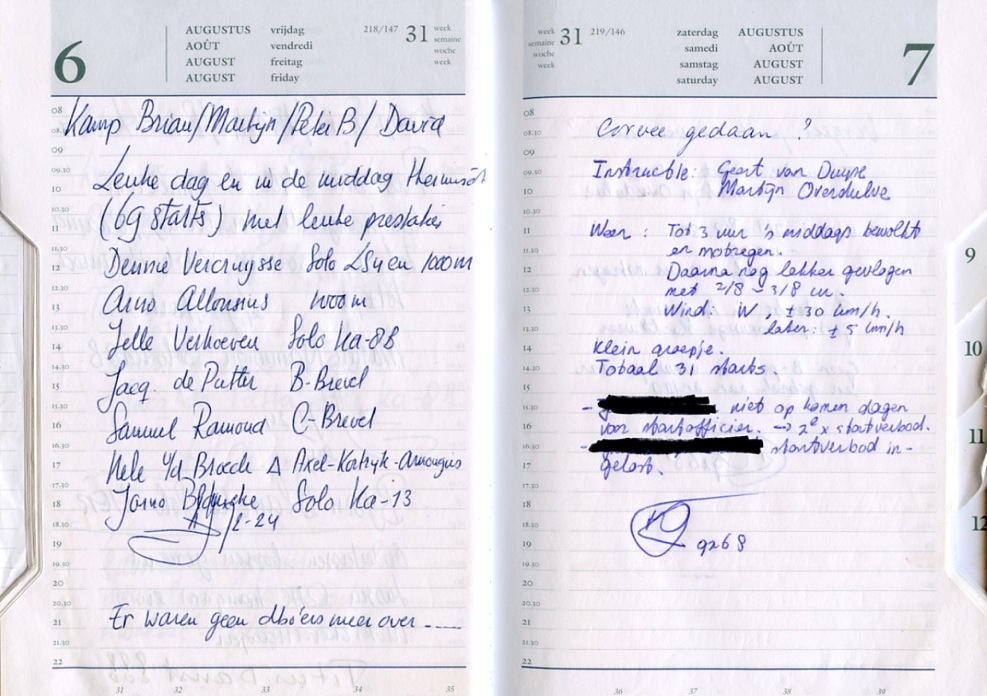 6
AUGUSTUS vrijdag
AOÛT vendredi
AUGUST freitag
AUGUST friday
218/147 31 week semaine woche week
08
08.30
09
09.30
10
10.30
11
11.30
12
12.30
13
13.30
14
14.30
15
15.30
16
16.30
17
17.30
18
18.30
19
19.30
20
20.30
21
21.30
22
Kamp Brian/Martijn/Peter B/ David
Leuke dag en in de middag thermisch
(69 starts) met leuke prestaties
Dennie Vercruysse Solo LS4 en 1000m
Arno Allousius 1000 m
Jelle Verhoeven Solo Ka-8B
Jacq. de Putter B-Brevet
Samuel Ramoud C-Brevet
Nele v/d Broeck Δ Axel-Kortryk-
Jarno Solo Ka-13
2-24
Er waren geen dbo'ers meer over ----
31 32 33 34 35
week semaine woche week 31 219/146
zaterdag AUGUSTUS
samedi AOÛT
samstag AUGUST
saturday AUGUST
7
08
08.30
09
09.30
10
10.30
11
11.30
12
12.30
13
13.30
14
14.30
15
15.30
16
16.30
17
17.30
18
18.30
19
19.30
20
20.30
21
21.30
22
Corvee gedaan ?
Instructie: Geert van Duyse
Martijn Overdulve
Weer : Tot 3 uur 's middags bewolkt
en motregen.
Daarna nog lekker gevlogen
met 2/8 - 3/8 cu.
Wind: W, ± 30 km/h.
later: ± 5 km/h
Klein groepje.
Totaal 31 starts.
- niet op komen dagen
voor startofficier. → 2e x startverbod.
- startverbod in-
gelost.
gz68
36 37 38 39
9
10
11
12